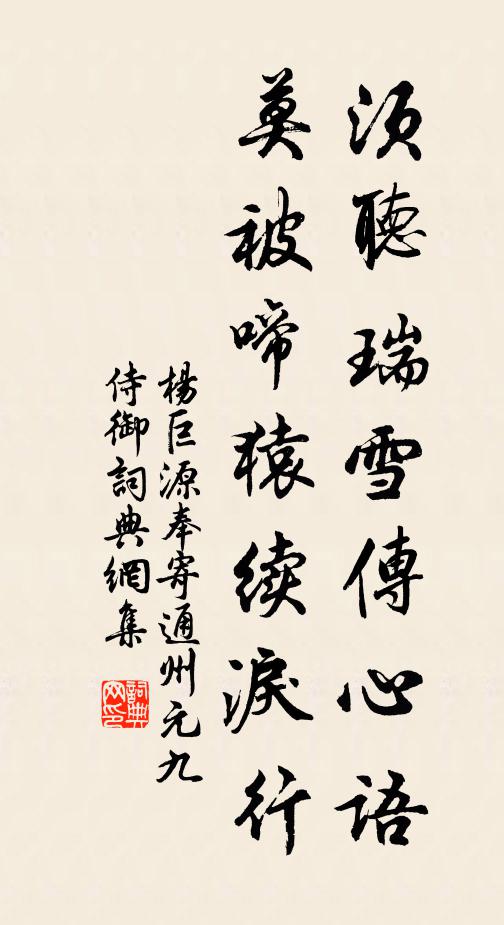 須聽瑞雪傳心語
莫被啼猿續淚行
楊巨源奉寄通州元九
侍御詞典網集
詞典
网印